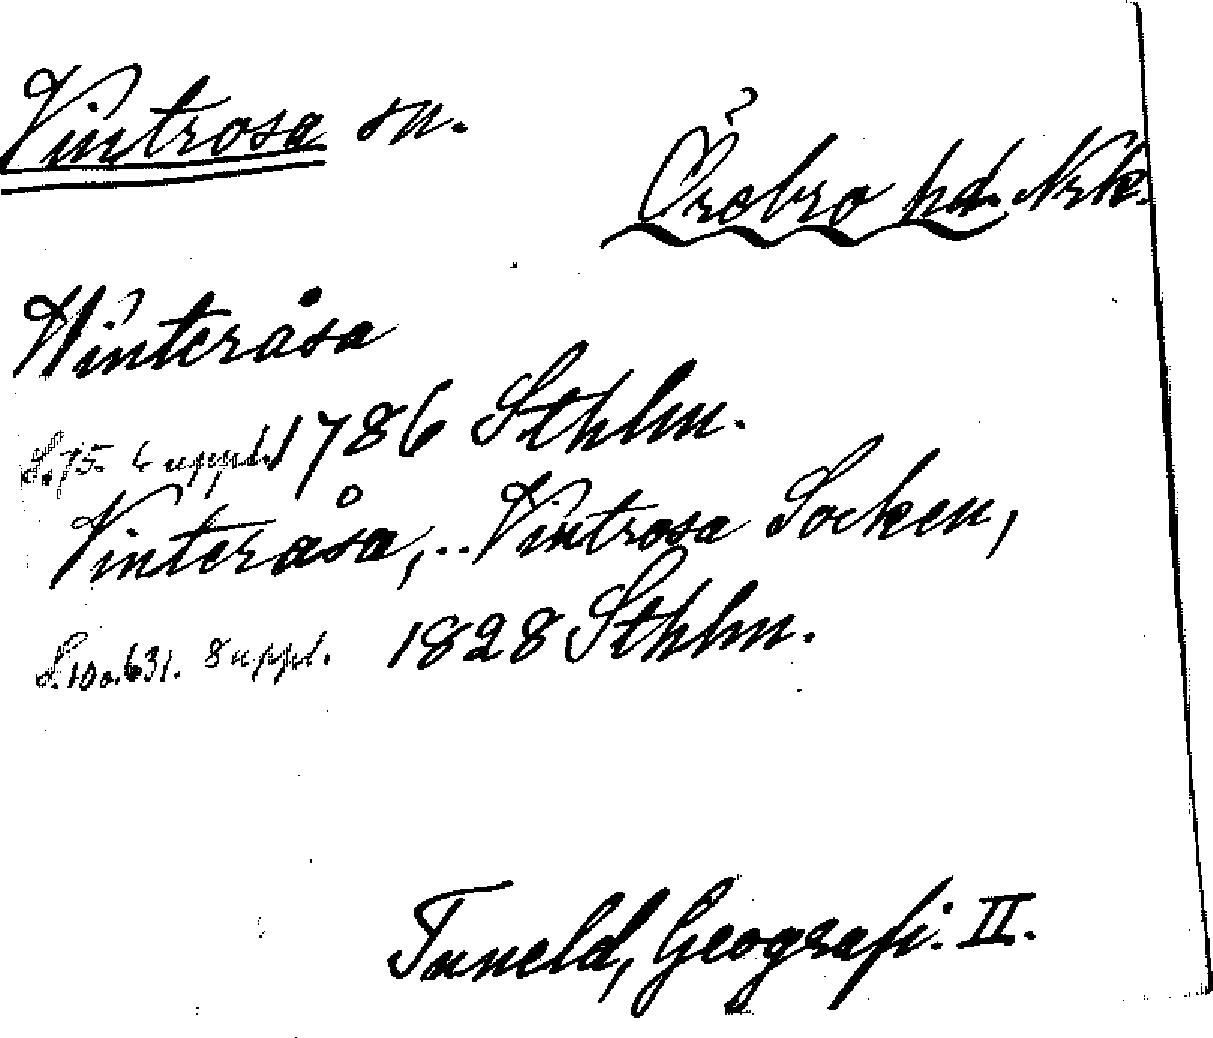 Vintrosa sn.
Örebro hd. Nrk.
Winteråsa
S. 75. 6 uppl. 1786 Sthlm.
Vinteråsa,.. Vintrosa Socken,
S. 10 o. 631. 8 uppl. 1828 Sthlm.
Tuneld, Geografi. II.